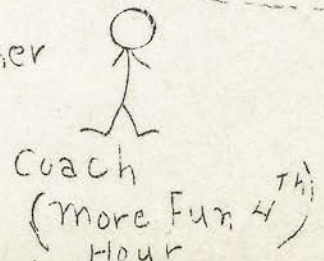 Coach
(more Fun 4th
Hour)